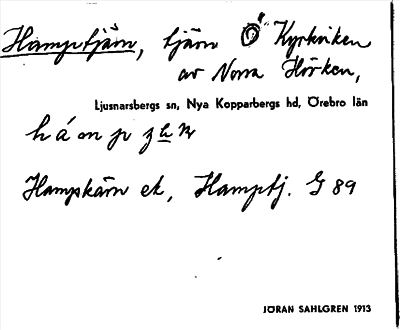 Hamptjärn, tjärn Ö Kyrkviken
av Norra Hörken,
Ljusnarsbergs sn, Nya Kopparbergs hd, Örebro län
Hampskärn ek, Hamptj. G 89
JÖRAN SAHLGREN 1913